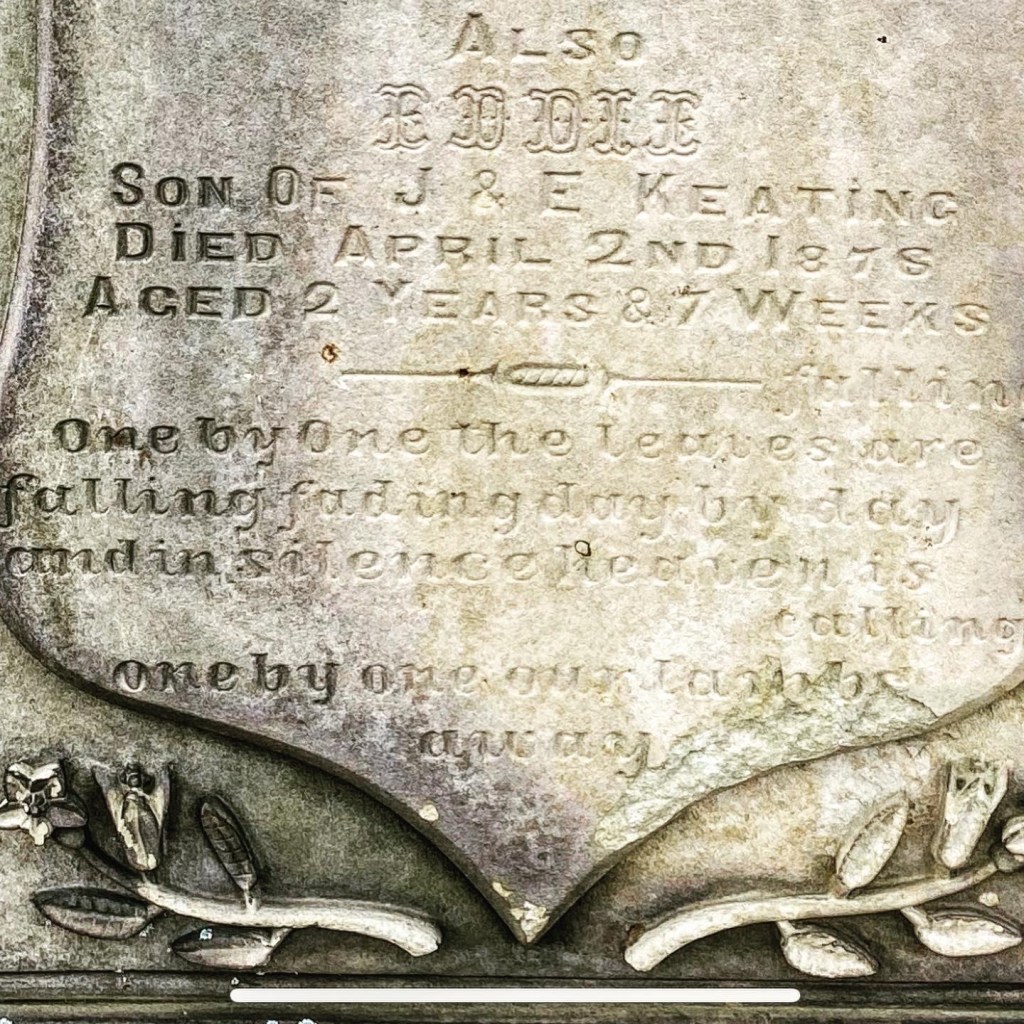 Also
EDDIE
Son Of J & E Keating
Died April 2nd 1878
Aged 2 Years & 7 Weeks
falling
One by One the leaves are
falling fading day by day
and in silence heaven is
calling
one by one our lambs
away